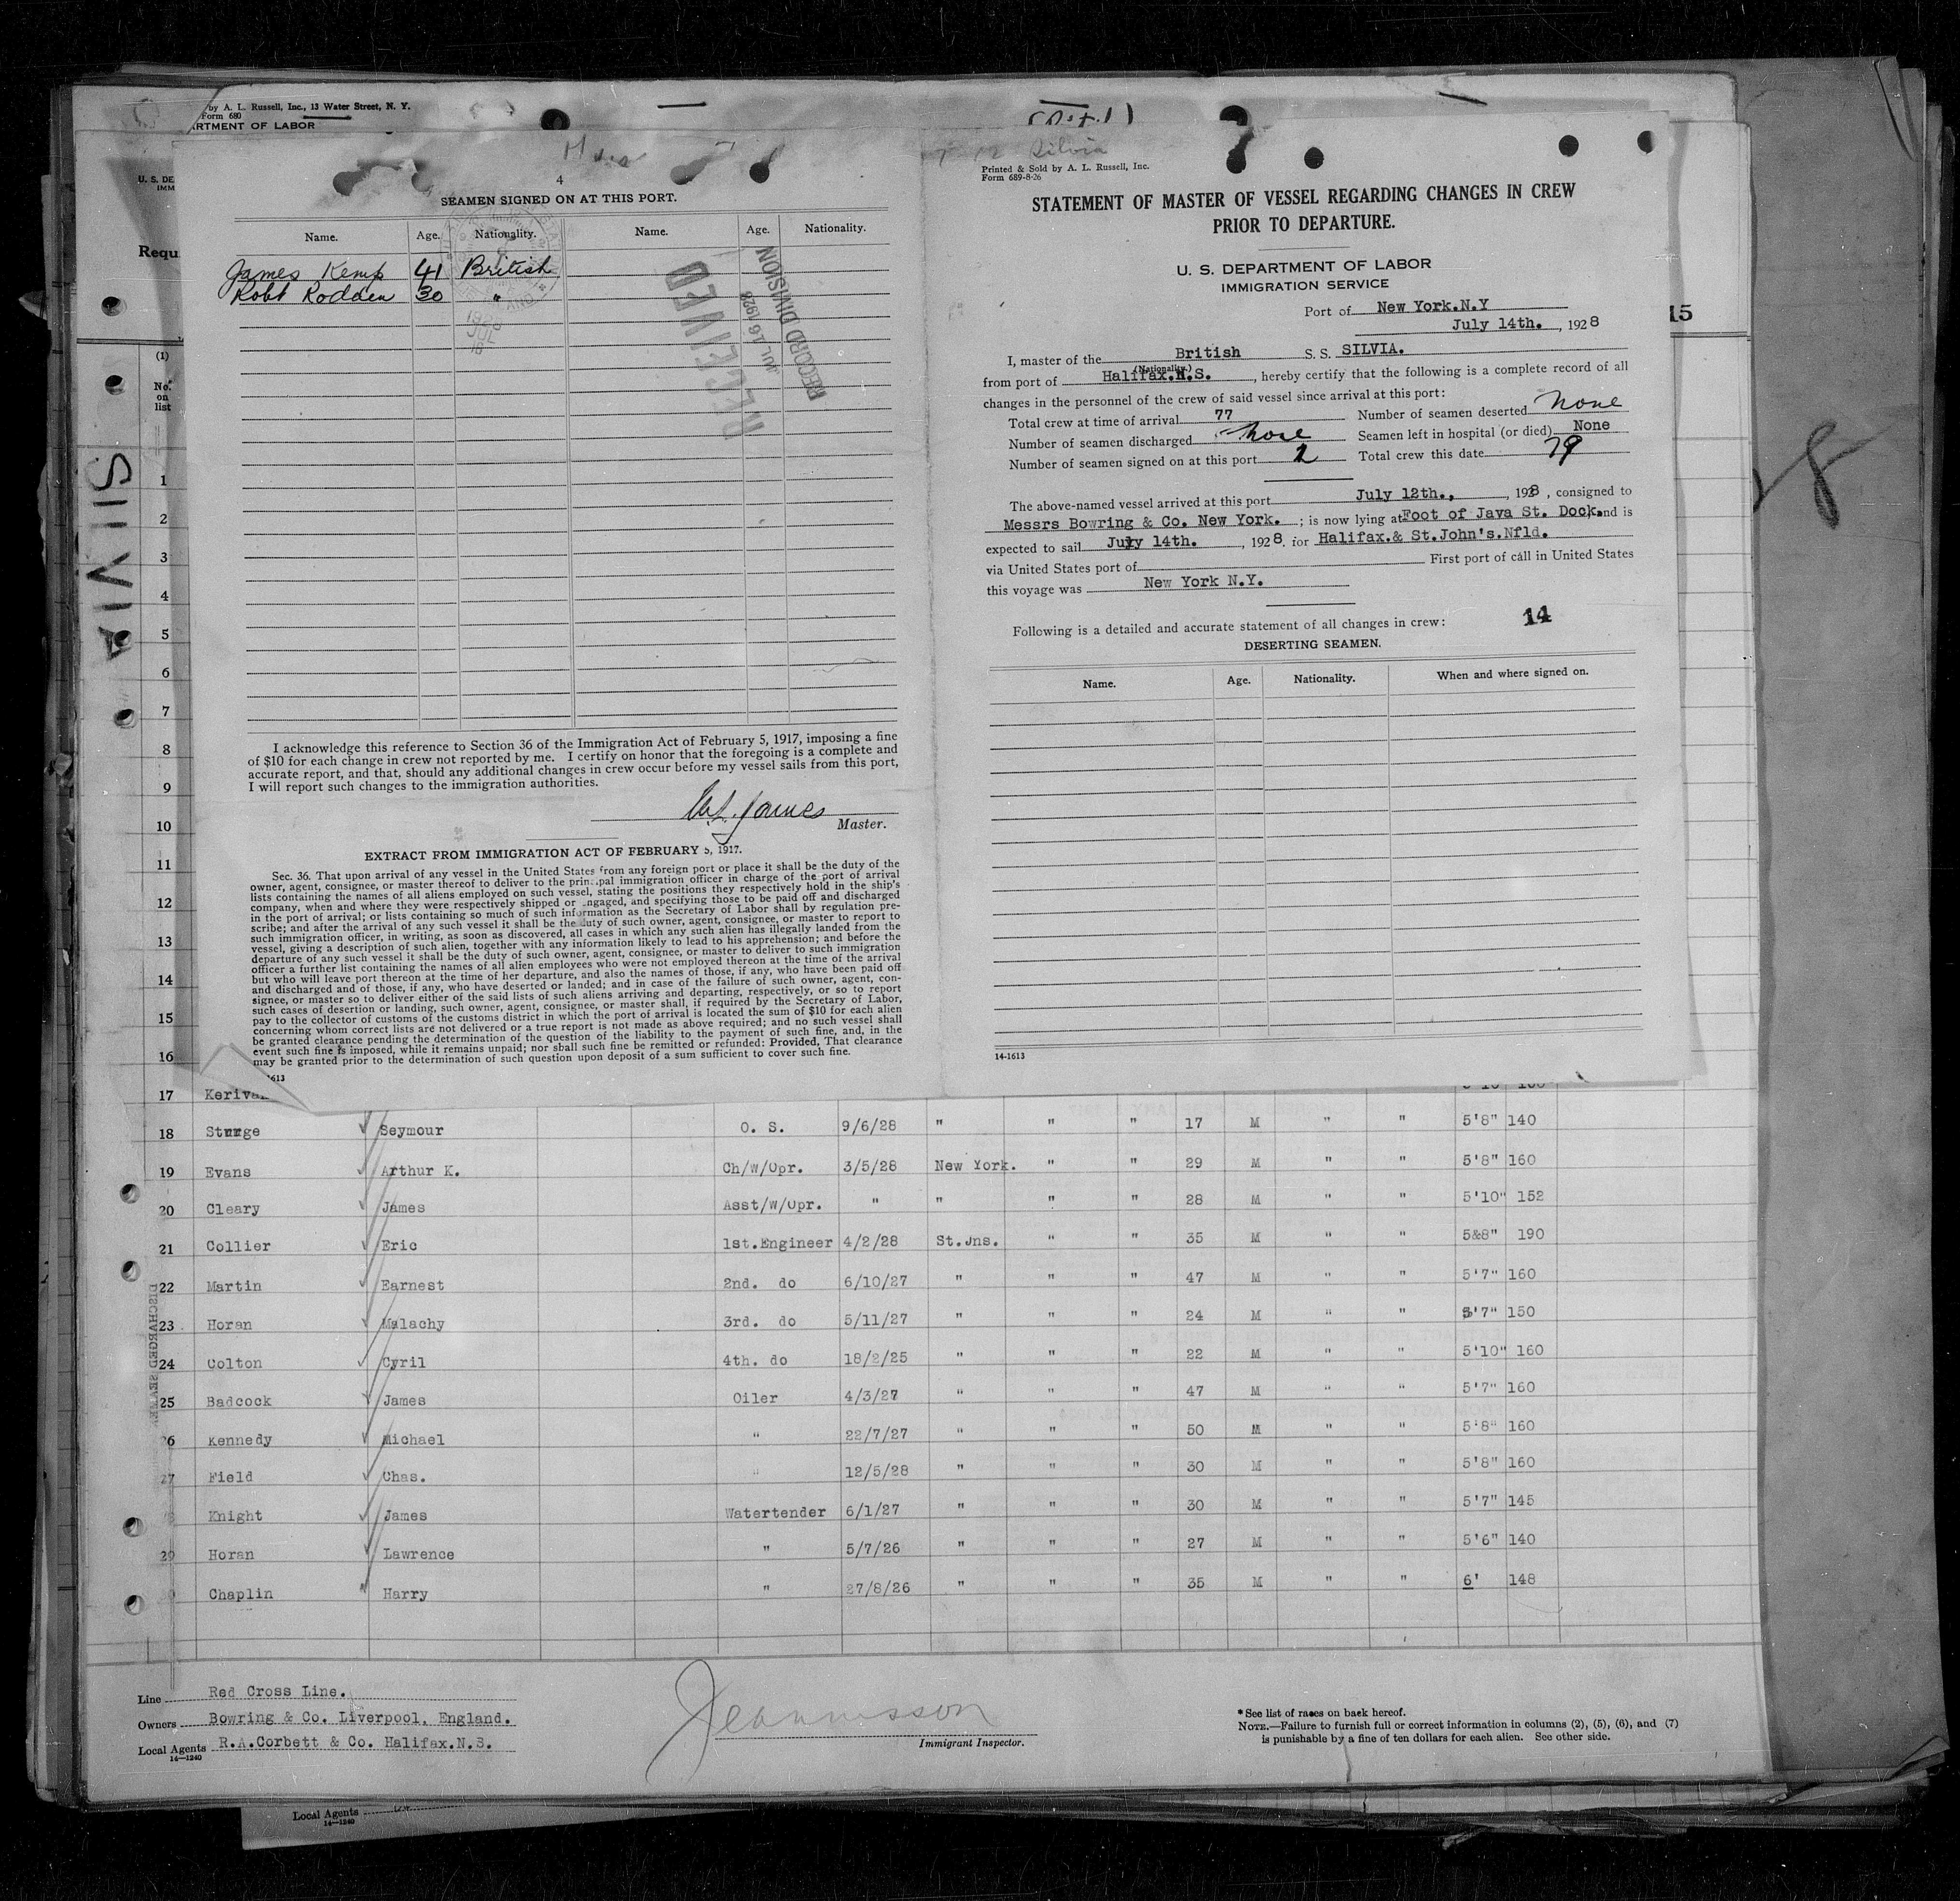 by A. L. Russell, Inc., 13 Water Street, N. Y.
Form 680
RTMENT OF LABOR
U. S. DE
IMM
Requ
15
(1)
No.
on
list
SILVIA
4
SEAMEN SIGNED ON AT THIS PORT.
Name. Age. Nationality. Name. Age. Nationality.
James Kemp 41 British
Robt Rodden 30 "
1928
JUL
16
RECEIVED
JUL 16 1928
RECORD DIVISION
I acknowledge this reference to Section 36 of the Immigration Act of February 5, 1917, imposing a fine
of $10 for each change in crew not reported by me. I certify on honor that the foregoing is a complete and
accurate report, and that, should any additional changes in crew occur before my vessel sails from this port,
I will report such changes to the immigration authorities.
James
Master.
EXTRACT FROM IMMIGRATION ACT OF FEBRUARY 5, 1917.
Sec. 36. That upon arrival of any vessel in the United States from any foreign port or place it shall be the duty of the
owner, agent, consignee, or master thereof to deliver to the principal immigration officer in charge of the port of arrival
lists containing the names of all aliens employed on such vessel, stating the positions they respectively hold in the ship's
company, when and where they were respectively shipped or engaged, and specifying those to be paid off and discharged
in the port of arrival; or lists containing so much of such information as the Secretary of Labor shall by regulation pre-
scribe; and after the arrival of any such vessel it shall be the duty of such owner, agent, consignee, or master to report to
such immigration officer, in writing, as soon as discovered, all cases in which any such alien has illegally landed from the
vessel, giving a description of such alien, together with any information likely to lead to his apprehension; and before the
departure of any such vessel it shall be the duty of such owner, agent, consignee, or master to deliver to such immigration
officer a further list containing the names of all alien employees who were not employed thereon at the time of the arrival
but who will leave port thereon at the time of her departure, and also the names of those, if any, who have been paid off
and discharged and of those, if any, who have deserted or landed; and in case of the failure of such owner, agent, con-
signee, or master so to deliver either of the said lists of such aliens arriving and departing, respectively, or so to report
such cases of desertion or landing, such owner, agent, consignee, or master shall, if required by the Secretary of Labor,
pay to the collector of customs of the customs district in which the port of arrival is located the sum of $10 for each alien
concerning whom correct lists are not delivered or a true report is not made as above required; and no such vessel shall
be granted clearance pending the determination of the question of the liability to the payment of such fine, and, in the
event such fine is imposed, while it remains unpaid; nor shall such fine be remitted or refunded: Provided, That clearance
may be granted prior to the determination of such question upon deposit of a sum sufficient to cover such fine.
1613
Silvia
Printed & Sold by A. L. Russell, Inc.
Form 689-8-26
STATEMENT OF MASTER OF VESSEL REGARDING CHANGES IN CREW
PRIOR TO DEPARTURE.
U. S. DEPARTMENT OF LABOR
IMMIGRATION SERVICE
Port of New York.N.Y
July 14th. , 1928
I, master of the British S. S. SILVIA.
(Nationality.)
from port of Halifax.N.S. , hereby certify that the following is a complete record of all
changes in the personnel of the crew of said vessel since arrival at this port:
Total crew at time of arrival 77 Number of seamen deserted None
Number of seamen discharged None Seamen left in hospital (or died) None
Number of seamen signed on at this port 2 Total crew this date 79
The above-named vessel arrived at this port July 12th., , 1928 , consigned to
Messrs Bowring & Co. New York. ; is now lying at Foot of Java St. Dock. and is
expected to sail July 14th. , 1928. for Halifax.& St.John's.Nfld.
via United States port of First port of call in United States
this voyage was New York N.Y.
14
Following is a detailed and accurate statement of all changes in crew:
DESERTING SEAMEN.
Name. Age. Nationality. When and where signed on.
14-1613
1
2
3
4
5
6
7
8
9
10
11
12
13
14
15
16
17
18 Sturge Seymour O. S. 9/6/28 " " " 17 M " " 5'8" 140
19 Evans Arthur K. Ch/W/Opr. 3/5/28 New York. " " 29 M " " 5'8" 160
20 Cleary James Asst/W/Opr. " " " " 28 M " " 5'10" 152
21 Collier Eric 1st.Engineer 4/2/28 St.Jns. " " 35 M " " 5&8" 190
22 Martin Earnest 2nd. do 6/10/27 " " " 47 M " " 5'7" 160
23 Horan Malachy 3rd. do 5/11/27 " " " 24 M " " 5'7" 150
24 Colton Cyril 4th. do 18/2/25 " " " 22 M " " 5'10" 160
25 Badcock James Oiler 4/3/27 " " " 47 M " " 5'7" 160
26 Kennedy Michael " 22/7/27 " " " 50 M " " 5'8" 160
27 Field Chas. " 12/5/28 " " " 30 M " " 5'8" 160
Knight James Watertender 6/1/27 " " " 30 M " " 5'7" 145
29 Horan Lawrence " 5/7/26 " " " 27 M " " 5'6" 140
Chaplin Harry " 27/8/26 " " " 35 M " " 6' 148
DISCHARGED SEAMEN
Line Red Cross Line.
Owners Bowring & Co. Liverpool, England.
Local Agents R.A.Corbett & Co. Halifax.N.S.
14—1240
Immigrant Inspector.
* See list of races on back hereof.
NOTE.—Failure to furnish full or correct information in columns (2), (5), (6), and (7)
is punishable by a fine of ten dollars for each alien. See other side.
Local Agents
14—1240